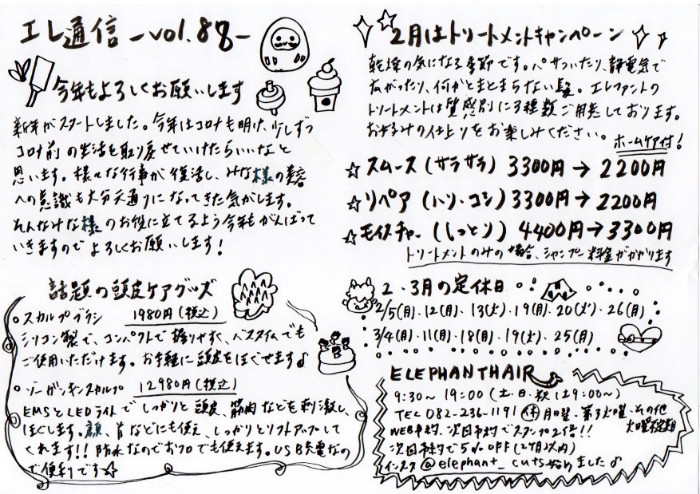 エレ通信 -vol.88-
今年もよろしくお願いします
新年がスタートしました。今年はコロナも明け、少しずつ
コロナ前の生活を取り戻せていけたらいいなと
思います。様々な行事が復活し、みな様の美容
への意識も大分元通りになってきた気がします。
そんなみな様のお役に立てるよう今年もがんばって
いきますのでよろしくお願いします!
話題の頭皮ケアグッズ
スカルプブラシ 1980円(税込)
シリコン製で、コンパクトで握りやすく、バスタイムでも
ご使用いただけます。お手軽に頭皮をほぐせます♪
ゾーガンキンスカルプ 12980円(税込)
EMSとLEDライトでしっかりと頭皮、筋肉なども刺激し、
ほぐします。顔、首などにも使え、しっかりとリフトアップして
くれます!!防水なのでおフロでも使えます。USB充電なの
で便利です☆
2月はトリートメントキャンペーン
乾燥の気になる季節です。パサついたり、静電気で
広がったり、何かとまとまらない髪。エレファントの
トリートメントは質感別に3種類ご用意しております。
お好みの仕上りをお楽しみください。
ホームケア付!
☆スムース(サラサラ) 3300円→2200円
☆リペア(ハリ・コシ) 3300円→2200円
☆モイスチャー(しっとり) 4400円→3300円
トリートメントのみの場合、シャンプー料金がかかります
2・3月の定休日
2/5(月)・12(月)・13(火)・19(月)・20(火)・26(月)
3/4(月)・11(月)・18(月)・19(火)・25(月)
ELEPHANTHAIR
9:30~19:00(土・日・祝は9:00~)
TEL 082-236-1191 休 月曜・第3火曜・その他
火曜不定期
WEB予約、次回予約でスタンプ2倍!!
次回予約で5%OFF(2ヶ月以内)
インスタ@elephant_cuts始めました♪